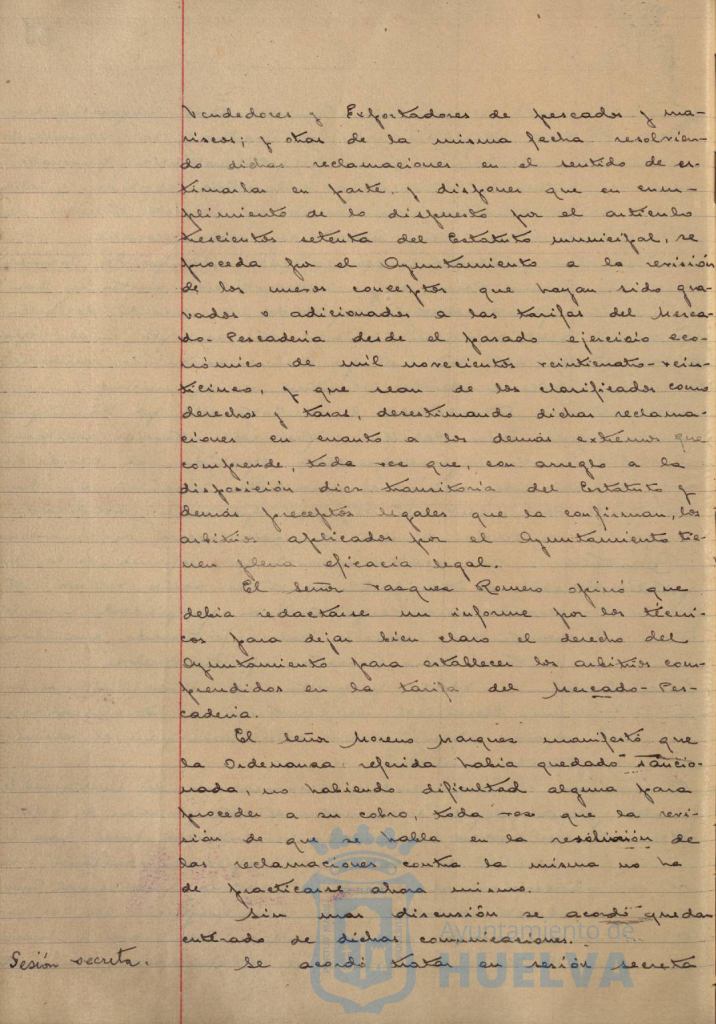 Vendedores y Exportadores de pescados y ma-
riscos; y otras de la misma fecha resolvien-
do dichas reclamaciones en el sentido de es-
timarlas en parte y disponer que en cum-
plimiento de lo dispuesto por el artículo
trescientos setenta del Estatuto municipal, se
proceda por el Ayuntamiento a la revisión
de los nuevos conceptos que hayan sido gra-
vados o adicionados a las tarifas del Merca-
do-Pescadería desde el pasado ejercicio eco-
nómico de mil novecientos veinticuatro-vein-
ticinco, y que sean de los clasificados como
derechos y tasas, desestimando dichas reclama-
ciones en cuanto a los demás extremos que
comprende, toda vez que, con arreglo a la
disposición diez transitoria del Estatuto y
demás preceptos legales que la confirman, los
arbitrios aplicados por el Ayuntamiento tie-
nen plena eficacia legal.
El Señor Vazquez Romero opinó que
debia redactarse un informe por los técni-
cos para dejar bien claro el derecho del
Ayuntamiento para establecer los arbitrios com-
prendidos en la tarifa del Mercado-Pes-
cadería.
El Señor Moreno Marquez manifestó que
la Ordenanza referida habia quedado sancio-
nada, no habiendo dificultad alguna para
proceder a su cobro, toda vez que la revi-
sión de que se habla en la resolución de
las reclamaciones contra la misma no ha
de practicarse ahora mismo.
Sin mas discusión se acordó quedar
enterado de dichas comunicaciones.
Sesión secreta. Se acordó tratar en sesión secreta
Ayuntamiento de
HUELVA